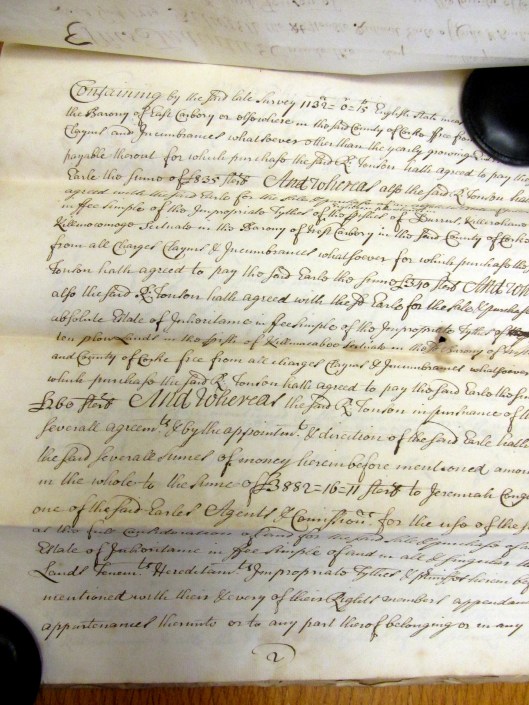 Containing by the said late Survey 1132=0=13 English Statute meas
the Barony of East Carbery or elsewhere in the said County of Corke free from
Claymes and Incumbrances whatsoever other than the yearly growing
payable thereout for which purchase the said R Tonson hath agreed to pay the
Earle the sume of £835 sterl And Whereas also the said R Tonson hath
agreed with the said Earle for the sale &
in ffee simple of the Impropriate Tythes of the prishes of Durrus, Killcrohane &
Killmocomoge Scituate in the Barony of West Carbery in the said County of Corke
from all Charges Claymes & Incumbrances whatsoever for which purchase the
Tonson hath agreed to pay the said Earle the sume £240 sterl And Wh
also the said R Tonson hath agreed with the sd Earle for the sale & purchase
absolute Estate of Inheritance in ffee simple of the Impropriate Tythes of
ten plow Lands in the prish of Killmacabee scituate in the sd Barony of West
and County of Corke free from all charges Claymes & Incumbrances whatsoever
which purchase the said R Tonson hath agreed to pay the said Earle the sum
£260 sterl And Whereas the said R Tonson in pursuance of
severall agreemts & by the appointmt & direction of the said Earle hath
the said severall sumes of money herein before mentioned amou
in the whole to the sume of £3882=16=11 sterl to Jeremiah
one of the said Earles Agents & Comissionrs for the use of the s
as the full Consideration of and for the said sale & purchase of
Estate of Inheritance in ffee simple of and in all & singular the
Lands Tenemts Hereditamts Impropriate Tythes & prmises herein bef
mentioned with their & every of their Rights members appendan
appurtenances thereunto or to any part thereof belonging or in any
2